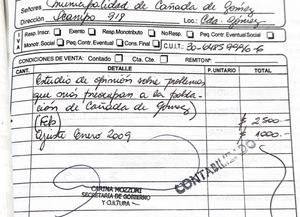 Señores Municipalidad de Cañada de Gómez
Dirección Ocampo 918 Loc.: Cda. Gómez
I V A Resp. Inscr. Exento Resp. Monotributo No Resp. Peq. Contr. Eventual
Monotr. Social Peq. Contr. Eventual Cons. Final C.U.I.T.:
CONDICIONES DE VENTA: Contado Cta. Cte. REMITO Nº
CANT. DETALLE P. UNITARIO TOTAL
Estudio de opinión sobre problemas
que más preocupan a la pobla-
ción de Cañada de Gómez
(Feb) $ 2500.-
Ajuste Enero 2009 $ 1000.-
CONTABILIZADO
CARINA MOZZONI
SECRETARIA DE GOBIERNO
Y CULTURA